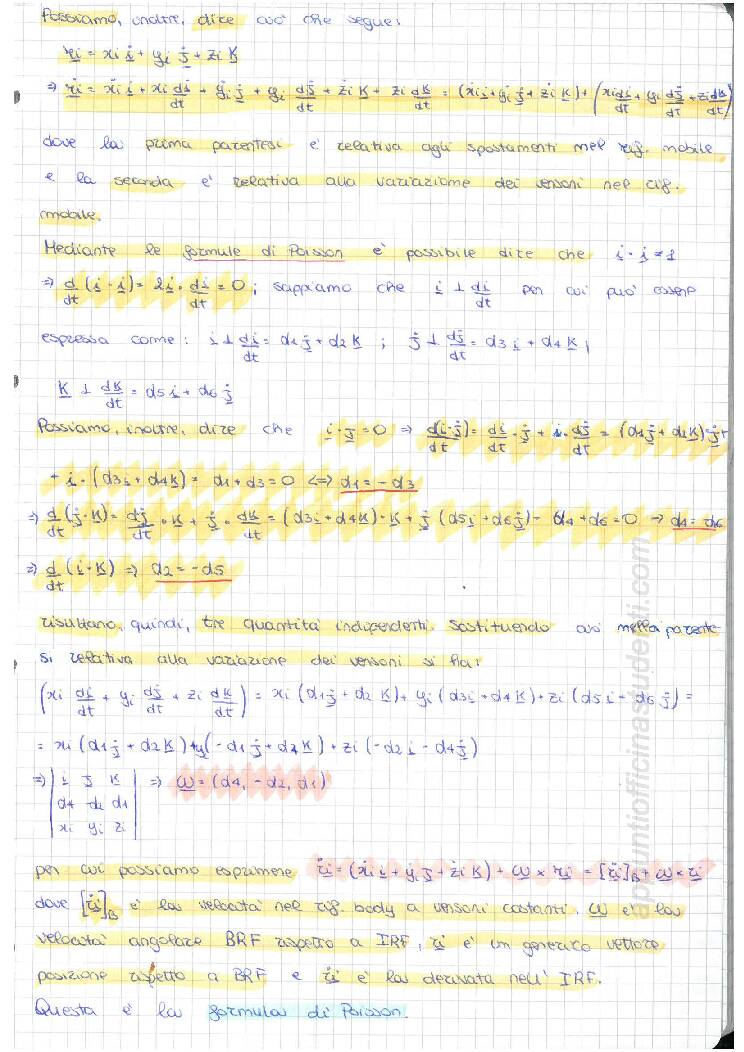 Possiamo, inoltre, dire così che segue:
r̲i = xi i̲ + yi j̲ + zi k̲
⇒ ṙ̲i = ẋi i̲ + xi di̲/dt + ẏi j̲ + yi dj̲/dt + żi k̲ + zi dk̲/dt = (ẋi i̲ + ẏi j̲ + żi k̲) + (xi di̲/dt + yi dj̲/dt + zi dk̲/dt)
dove la prima parentesi è relativa agli spostamenti nel rif. mobile
e la seconda è relativa alla variazione dei versori nel rif.
mobile.
Mediante le formule di Poisson è possibile dire che i̲ · i̲ = 1
⇒ d/dt (i̲ · i̲) = 2i̲ · di̲/dt = 0 ; sappiamo che i̲ ⊥ di̲/dt per cui può essere
espressa come: i ⊥ di̲/dt = d1 j̲ + d2 k̲ ; j̲ ⊥ dj̲/dt = d3 i̲ + d4 k̲ ;
k̲ ⊥ dk̲/dt = d5 i̲ + d6 j̲
Possiamo, inoltre, dire che i̲ · j̲ = 0 ⇒ d(i̲ · j̲)/dt = di̲/dt · j̲ + i̲ · dj̲/dt = (d1 j̲ + d2 k̲) · j̲ +
+ i̲ · (d3 i̲ + d4 k̲) = d1 + d3 = 0 <=> d1 = - d3
⇒ d/dt (j̲ · k̲) = dj̲/dt · k̲ + j̲ · dk̲/dt = (d3 i̲ + d4 k̲) · k̲ + j̲ (d5 i̲ + d6 j̲) = d4 + d6 = 0 → d4 = d6
⇒ d/dt (i̲ · k̲) ⇒ d2 = - d5
risultano, quindi, tre quantità indipendenti. Sostituendo così nella parente
si relativa alla variazione dei versori si ha:
(xi di̲/dt + yi dj̲/dt + zi dk̲/dt) = xi (d1 j̲ + d2 k̲) + yi (d3 i̲ + d4 k̲) + zi (d5 i̲ - d6 j̲) =
= xi (d1 j̲ + d2 k̲) + y (-d1 j̲ + d4 k̲) + zi (-d2 i̲ - d4 j̲)
⇒ | i̲ j̲ k̲ | ⇒ ω̲ = (d4, -d2, d1)
| d4 -d2 d1 |
| xi yi zi |
per cui possiamo esprimere ṙ̲i = (ẋi i̲ + yi j̲ + żi k̲) + ω̲ × r̲i = [ṙ̲i]B + ω̲ × r̲i
dove [ṙ̲i]B è la velocità nel rif. body a versori costanti, ω̲ è la
velocità angolare BRF rispetto a IRF, r̲i è un generico vettore
posizione rispetto a BRF e ṙ̲i è la derivata nell' IRF.
Questa è la formula di Poisson.
appuntiofficinastudenti.com